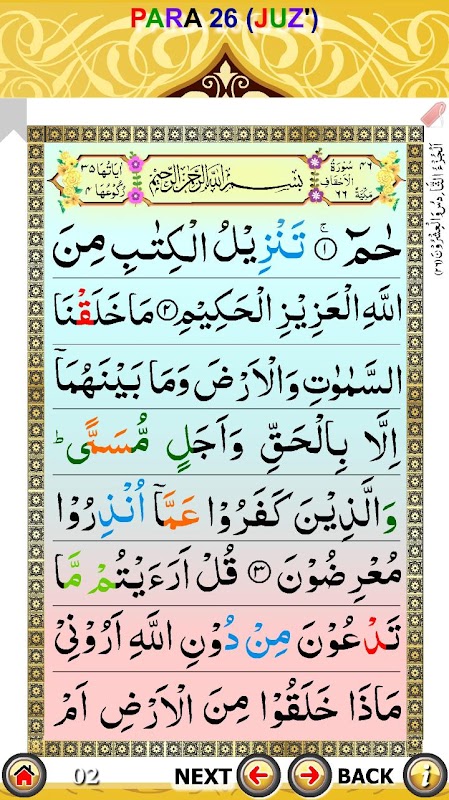 PARA 26 (JUZ')
اَلْجُزْءُ السَّادِسُ وَالْعِشْرُوْنَ (٢٦)
٤٦ سُوْرَةُ الْاَحْقَافِ مَكِّيَّةٌ ٦٦
بِسْمِ اللّٰهِ الرَّحْمٰنِ الرَّحِيْمِ
اٰيَاتُهَا ٣٥
رُكُوْعُهَا ٤
حٰمٓ ۚ﴿۱﴾ تَنْزِيْلُ الْكِتٰبِ مِنَ
اللّٰهِ الْعَزِيْزِ الْحَكِيْمِ ﴿۲﴾ مَا خَلَقْنَا
السَّمٰوٰتِ وَالْاَرْضَ وَمَا بَيْنَهُمَاۤ
اِلَّا بِالْحَقِّ وَاَجَلٍ مُّسَمًّى ؕ
وَالَّذِيْنَ كَفَرُوْا عَمَّاۤ اُنْذِرُوْا
مُعْرِضُوْنَ ﴿۳﴾ قُلْ اَرَءَيْتُمْ مَّا
تَدْعُوْنَ مِنْ دُوْنِ اللّٰهِ اَرُوْنِيْ
مَاذَا خَلَقُوْا مِنَ الْاَرْضِ اَمْ
02 NEXT BACK i